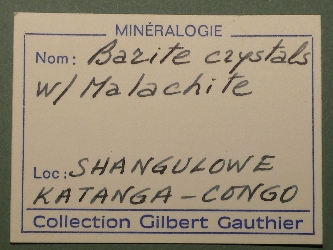 MINÉRALOGIE
Nom: Barite crystals
w/ Malachite
Loc: SHANGULOWE
KATANGA - CONGO
Collection Gilbert Gauthier